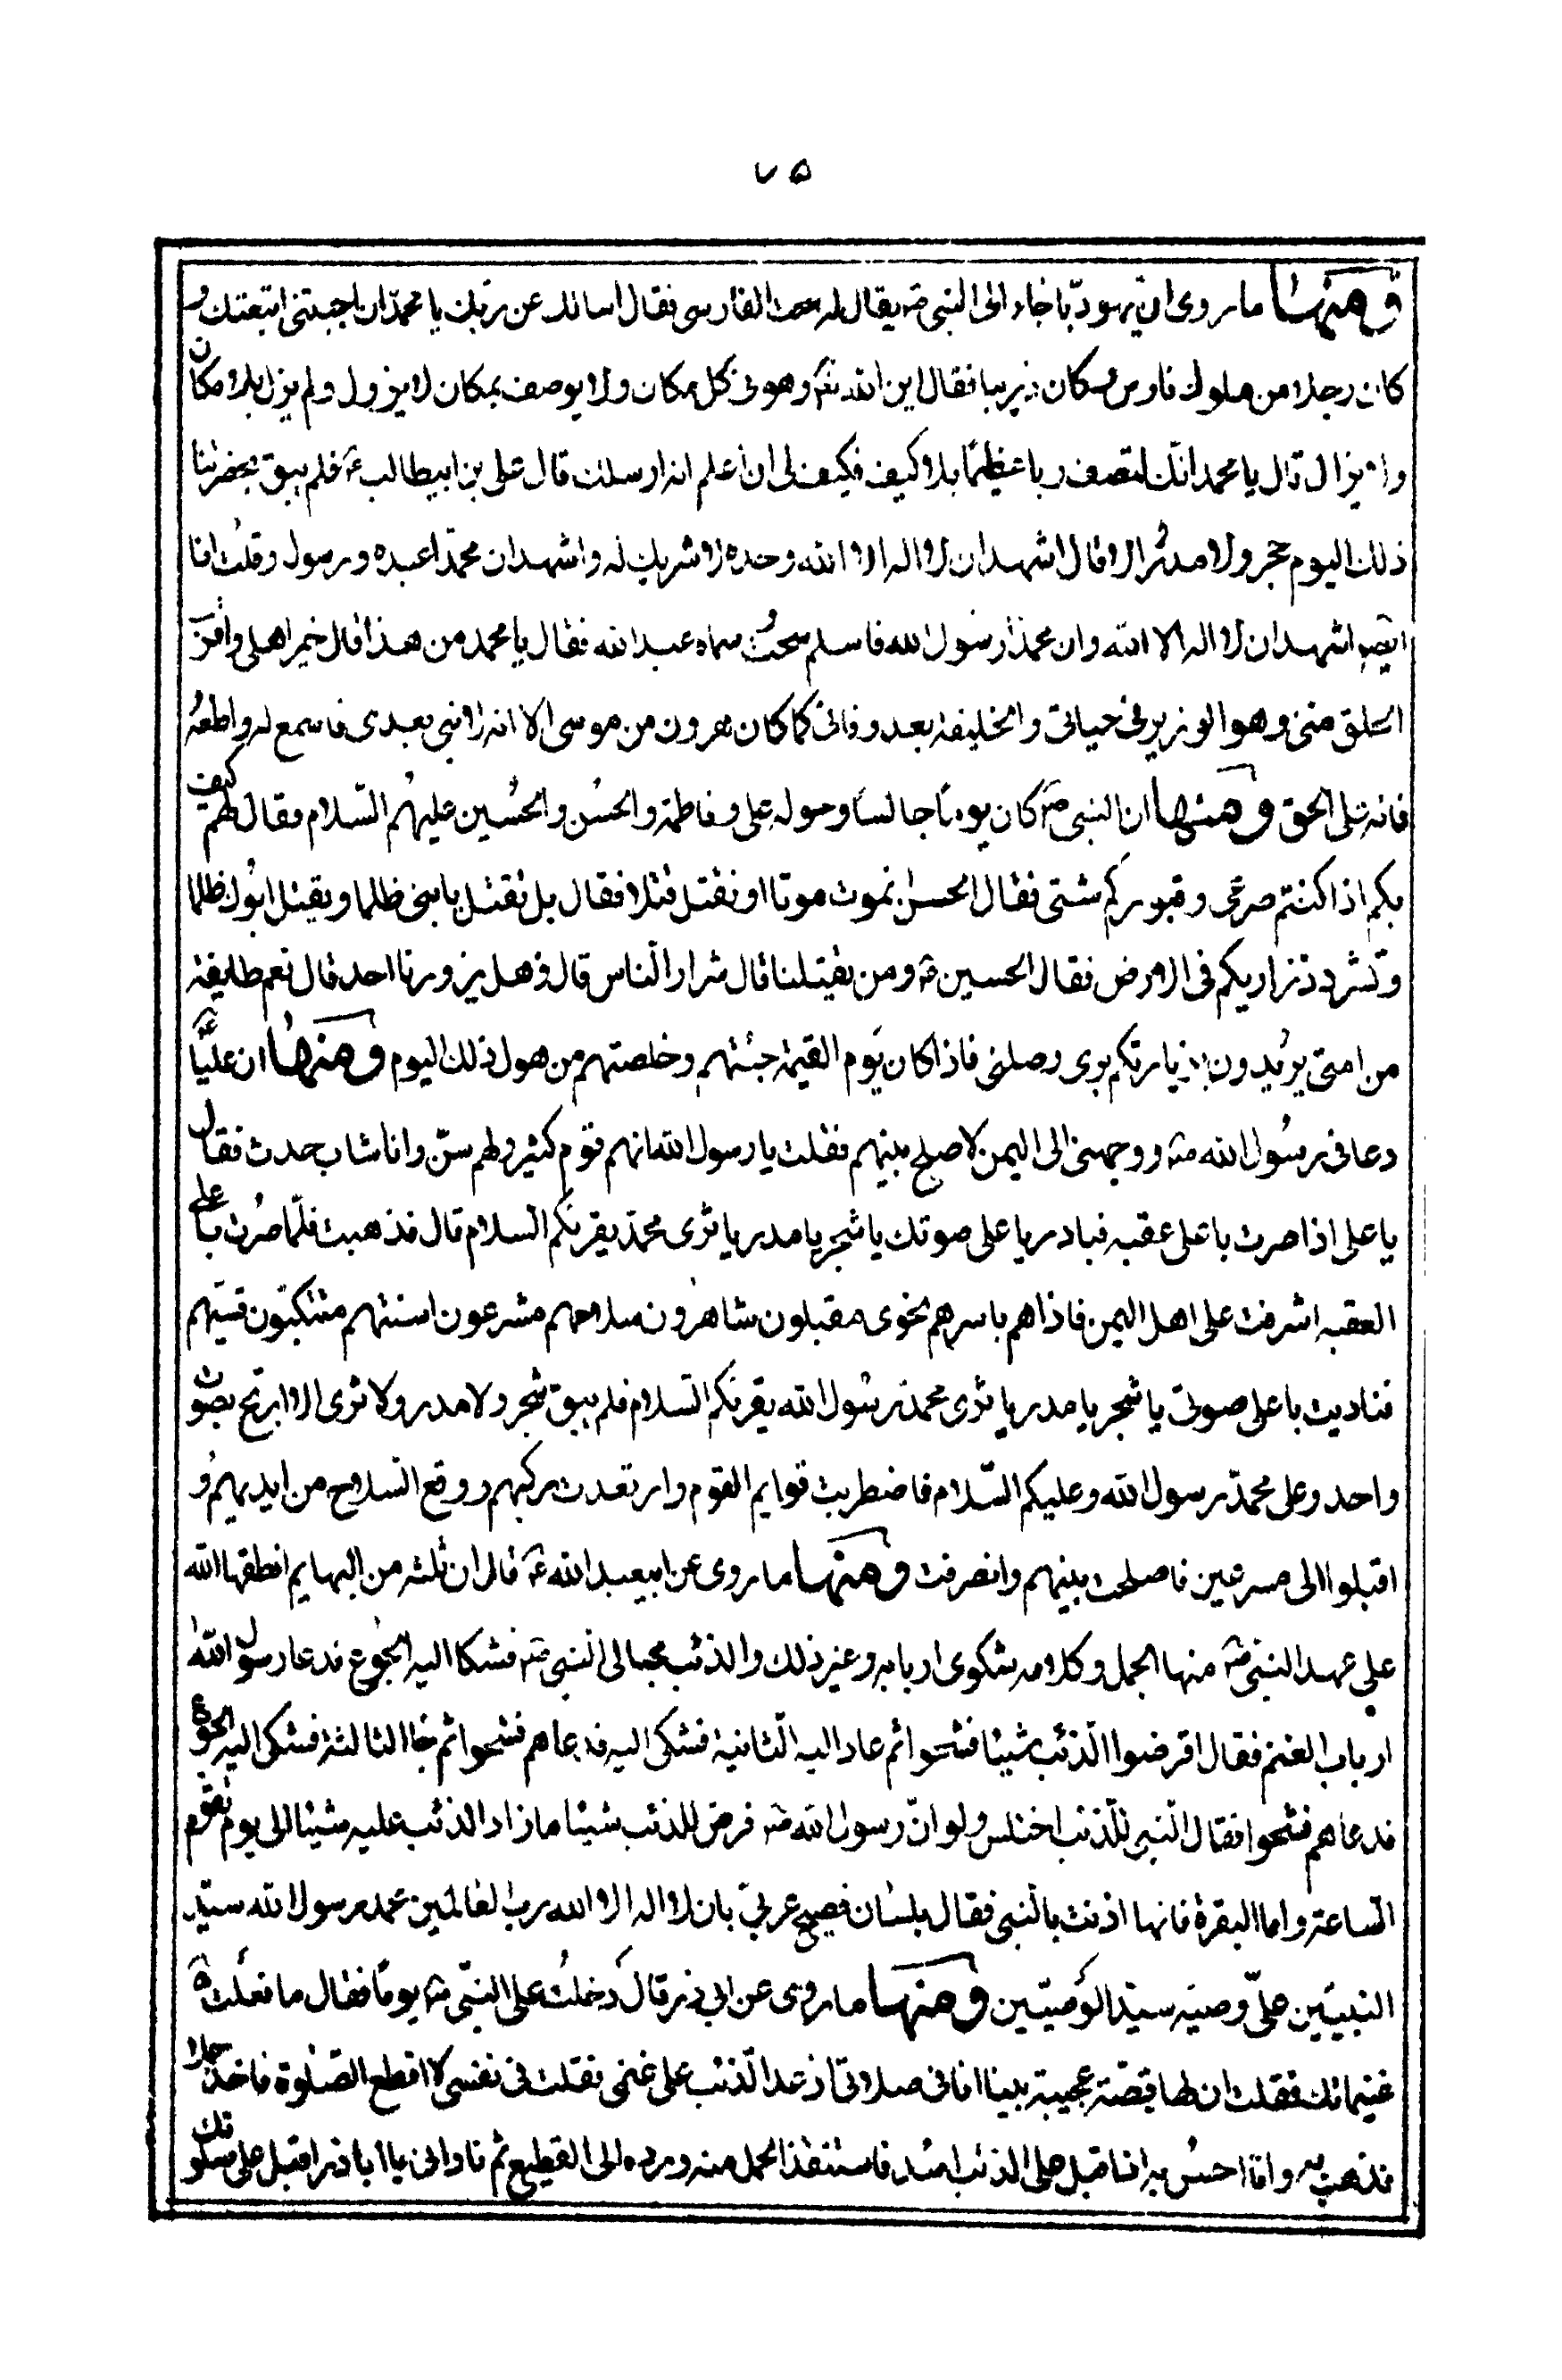 ٧٥
ومنها ما روى ان يهوديّا جاء الى النبى ص يقال له سحت الفارسى فقال اسالك عن ربك يا محمدّ ان اجبتنى اتبعتك و
كان رجلا من ملوك فارس وكان ذربا فقال اين الله فقال هو فى كل مكان ولا يوصف بمكان لا يزول ولم يزل بلا مكان
ولا يزال قال يا محمد انك لتصف ربا عظيمًا بلا كيف فكيف لى ان اعلم انه ارسلك قال على بن ابيطالب ع فلم يبق بحضرتنا
ذلك اليوم حجر ولا مدر الا قال اشهد ان لا اله الا الله وحده لا شريك له واشهد ان محمدّا عبده ورسوله وقلت انا
ايضا اشهد ان لا اله الا الله وان محمدًا رسول الله فاسلم سحت وسماه عبد الله فقال يا محمد من هذا قال خير اهلى واقرب
الخلق منى وهو الوزير فى حياتى والخليفة بعد وفاتى كما كان هرون من موسى الا انه لا نبى بعدى فاسمع له واطعهُ
فانه على الحق ومنها ان النبى ص كان يومًا جالسًا وحوله على وفاطمة والحسُن والحسُين عليهُم السّلام فقال لهم كيف
بكم اذا كنتم صرعى وقبوركم شتى فقال الحسن نموت موتا او نقتل قتلا فقال بل تقتل يا بنى ظلما ويقتل ابوك ظلما
وتشرد ذراريكم فى الارض فقال الحسين ع ومن يقتلنا قال شرار النّاس قال فهل يزورنا احد قال نعم طايفة
من امتى يريدون بزيارتكم برى وصلتى فاذا كان يَوم القيمة جئتهم وخلصتهم من هول ذلك اليوم ومنها ان عليًّا
دعانى رسُول الله ص ووجهنى الى اليمن لاصلح بينهم فقلت يا رسول الله انهم قوم كثير ولهم سنّ وانا شاب حدث فقال
يا على اذا صرت باعلى عقبه فناد رياعلى صوتك يا شجر يا مدر يا ثرى محمدّ يقرئكم السلام قال فذهبت فلمّا صرُت باعلى
العقبه اشرفت على اهل اليمن فاذا هم باسرهم نحوى مقبلون شاهرُون سلاحهم مشرعون اسنتهم متنكبّون قسيّهم
فناديت باعلى صوتى يا شجر يا مدر يا ثرى محمدّ رسُول الله يقرئكم السّلام فلم يبق شجر ولا مدر ولا ثرى الا ارتج بصوت
واحد وعلى محمدّ رسول الله وعليكم السّلام فاضطربت قوايم القوم وارتعدت ركبهم ووقع السلاح من ايديهُم و
اقبلوا الى مسرعين فاصلحت بينهم وانصرفت ومنها ما روى عن ابيعبد الله ع قال ان ثلثه من البهايم انطقها الله
على عهد النبى ص منها الجمل وكلامه شكوى اربابه وغير ذلك والذئب فجا الى النبى ص فشكا اليه الجوع فدعا رسول الله
ارباب الغنم فقال اقرضوا الذّئب شيئا فشحوا ثم عاد اليه الثّانية فشكى اليه فدعاهم فشحوا ثم جا الثالثة فشكى اليه الجوع
فدعاهم فشحوا فقال النّبى للذئب اختلس ولو انّ رسول الله ص فرض للذئب شيئا ما زاد الذئب عليه شيئا الى يوم تقوم
السّاعة واما البقرة فانها اذنت بالنبى فقال بلسان فصيح عربىّ بان لا اله الا الله رب العالمين محمد رسول الله سيّد
النبيّين علىّ وصيّه سيدّ الوصيّين ومنها ما روى عن ابى ذر قال دخلتُ على النبّى ص يومًا فقال ما فعلت
غنيماتك فقلت ان لها قصّة عجيبة بينا انا فى صلاتى اذ عدا الذّئب على غنمى فقلت فى نفسى لا اقطع الصّلوة فاخذ حملا
فذهب به وانا احسُ به اذا قبل على الذئب اسد فاستنقذ الحمل منه ورده الى القطيع ثم نادانى يا اباذر اقبل على صلوتك